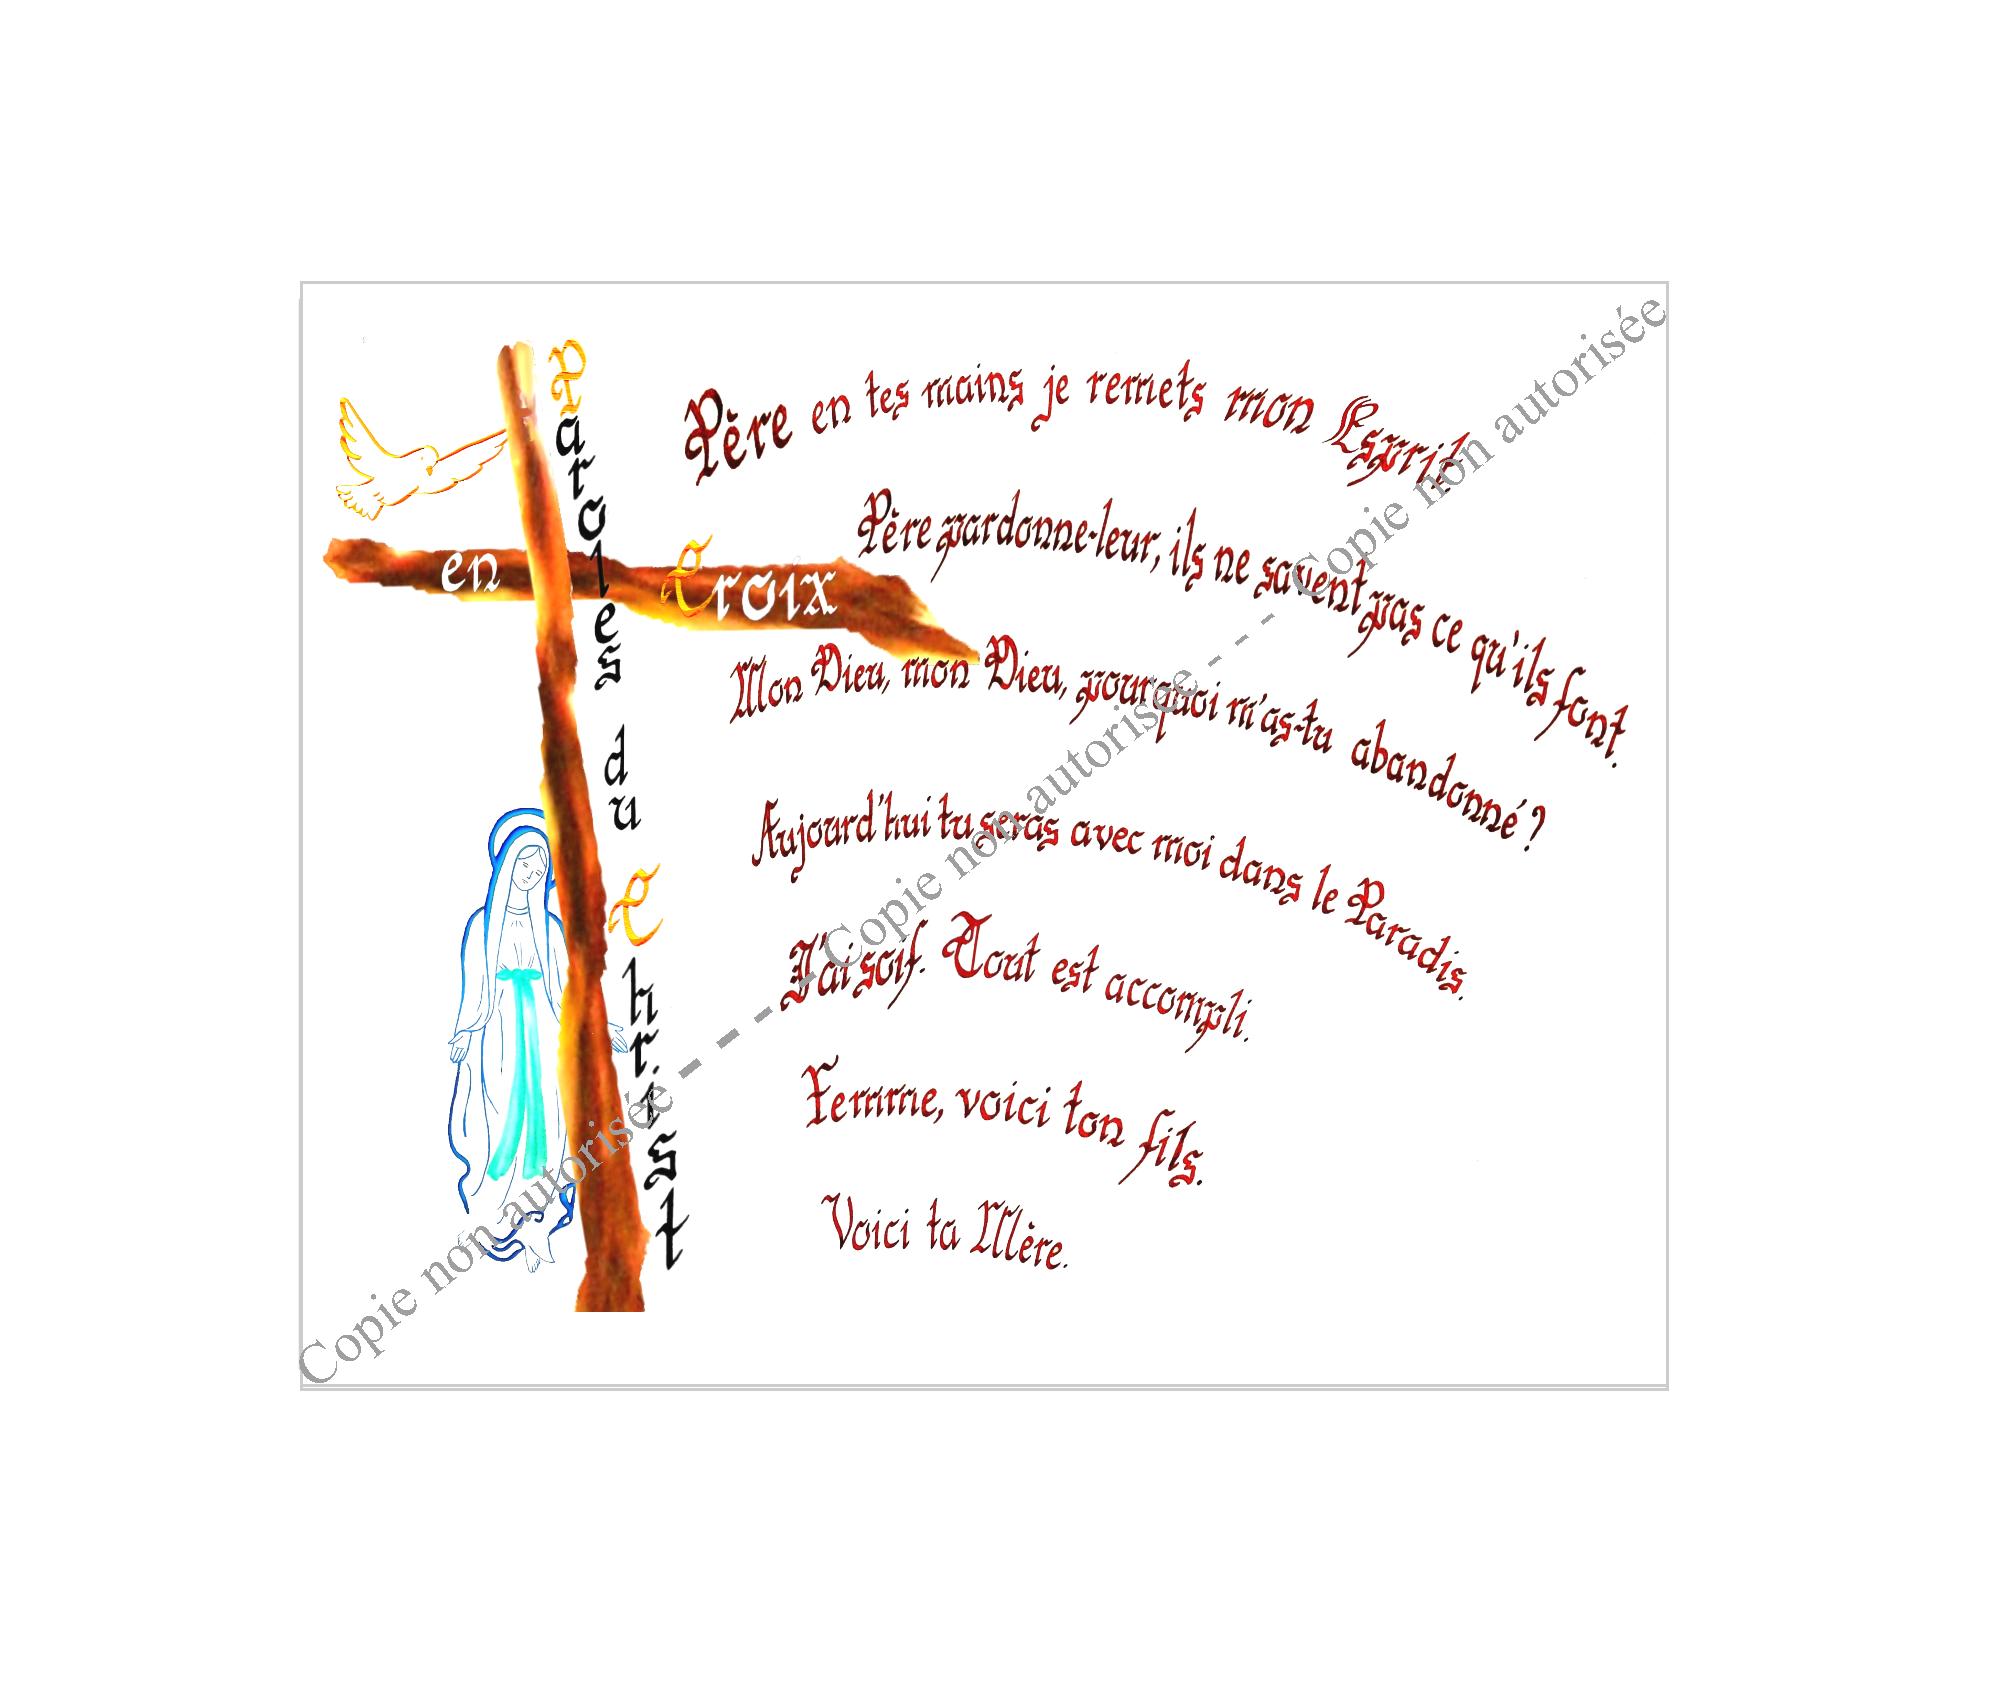 Paroles du Christ
en Croix
Père en tes mains je remets mon Esprit
Père pardonne-leur, ils ne savent pas ce qu'ils font.
Mon Dieu, mon Dieu, pourquoi m'as-tu abandonné ?
Aujourd'hui tu seras avec moi dans le Paradis.
J'ai soif. Tout est accompli.
Femme, voici ton fils.
Voici ta Mère.
Copie non autorisée - - - - - Copie non autorisée - - - - Copie non autorisée